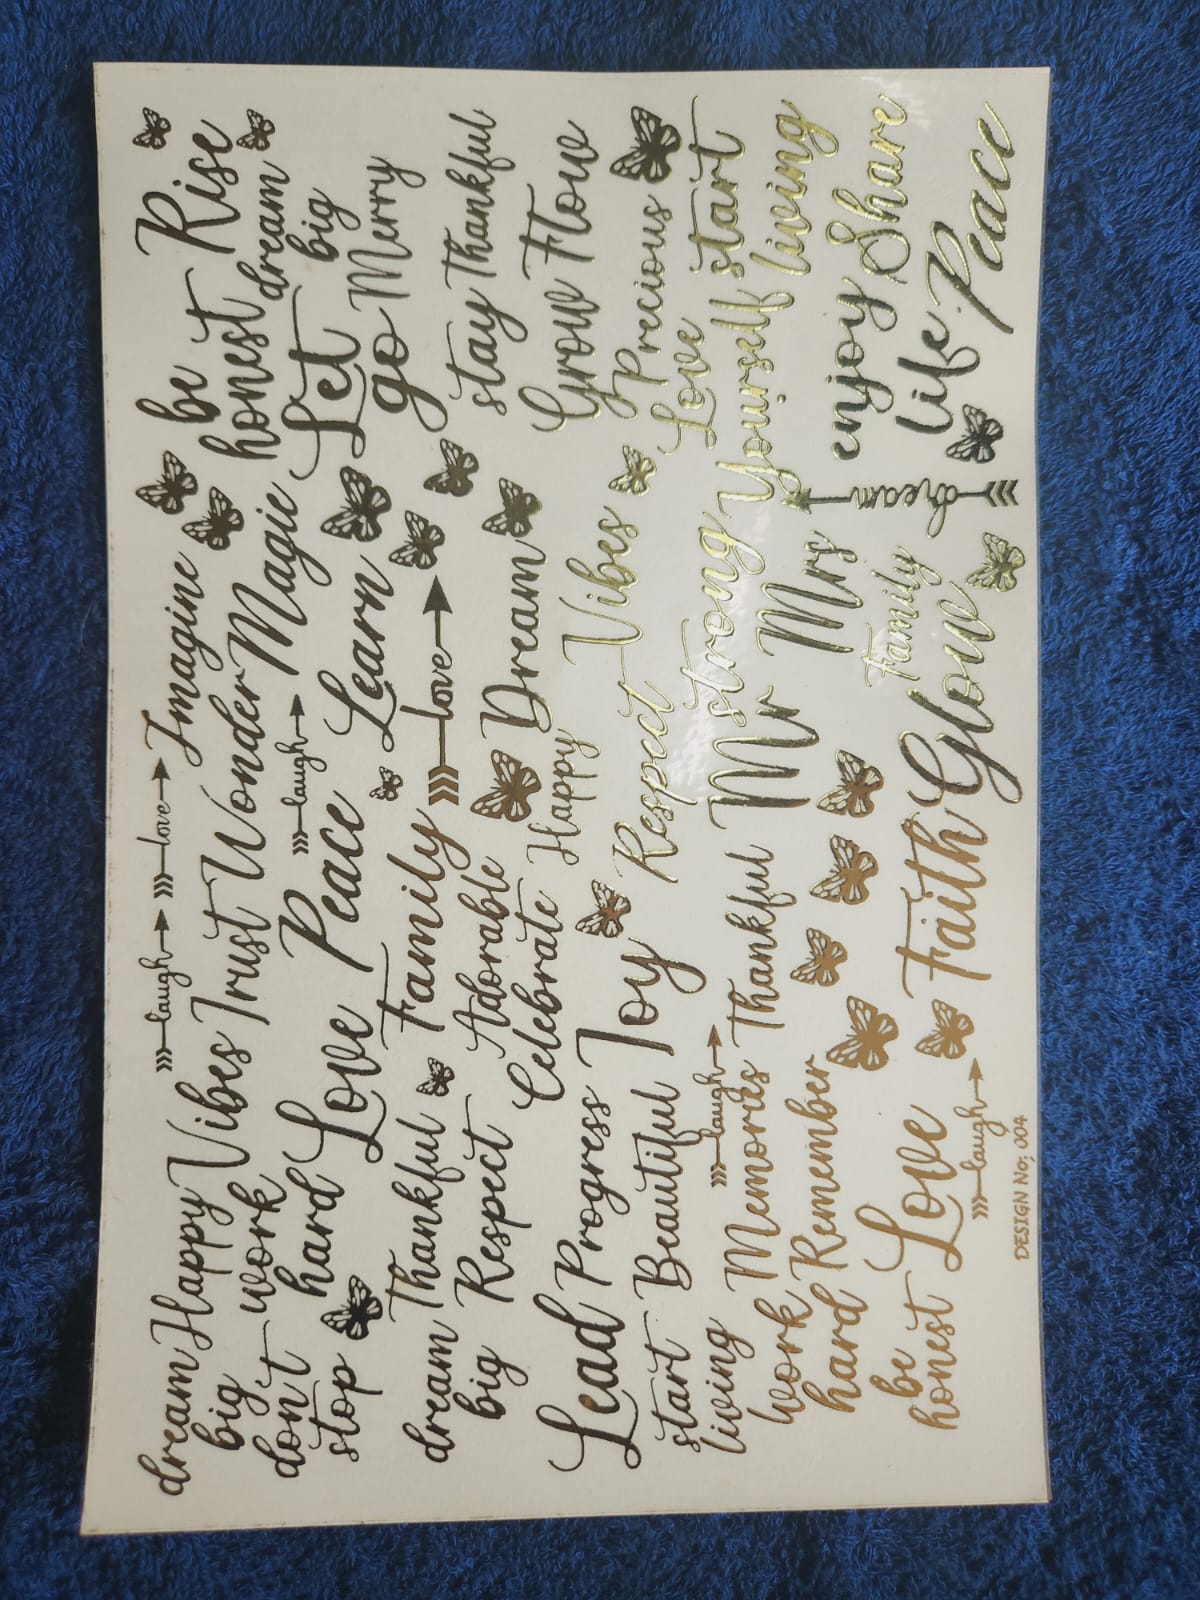 laugh love Imagine be Rise
dream big Happy Vibes Trust Wonder Magic honest dream big
don't stop work hard Love Peace laugh Learn Let go Merry
dream big Thankful Family love stay Thankful
Respect Adorable Dream Grow Flow
Celebrate Happy Vibes Precious
Lead Progress Joy Respect strong Love Yourself start living
start living Beautiful laugh Mr Mrs enjoy life Share
work hard Memories Thankful Family dream
Remember
be honest Love Faith Glow Peace
laugh
DESIGN No; 004